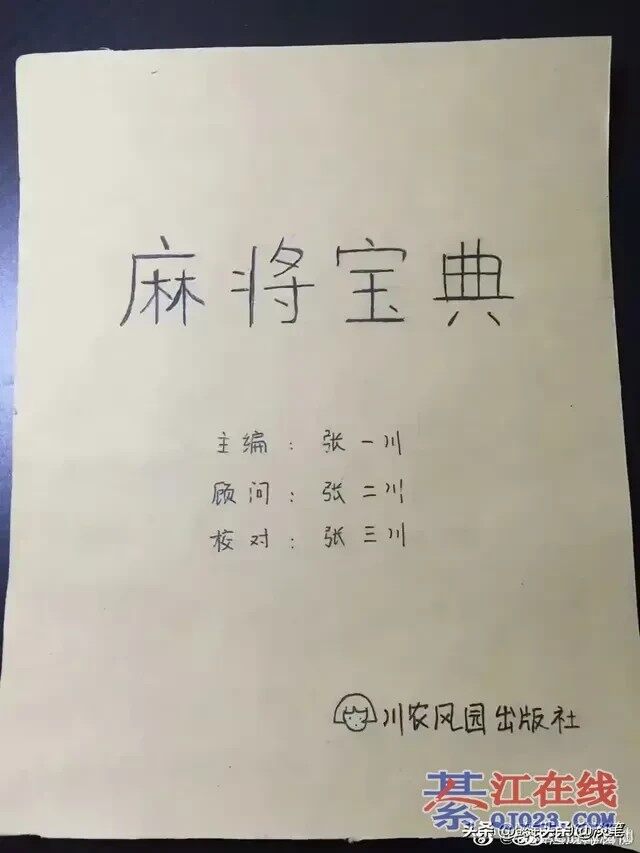 麻将宝典
主编：张一川
顾问：张二川
校对：张三川
川农风园出版社
綦江在线
QJ023.COM